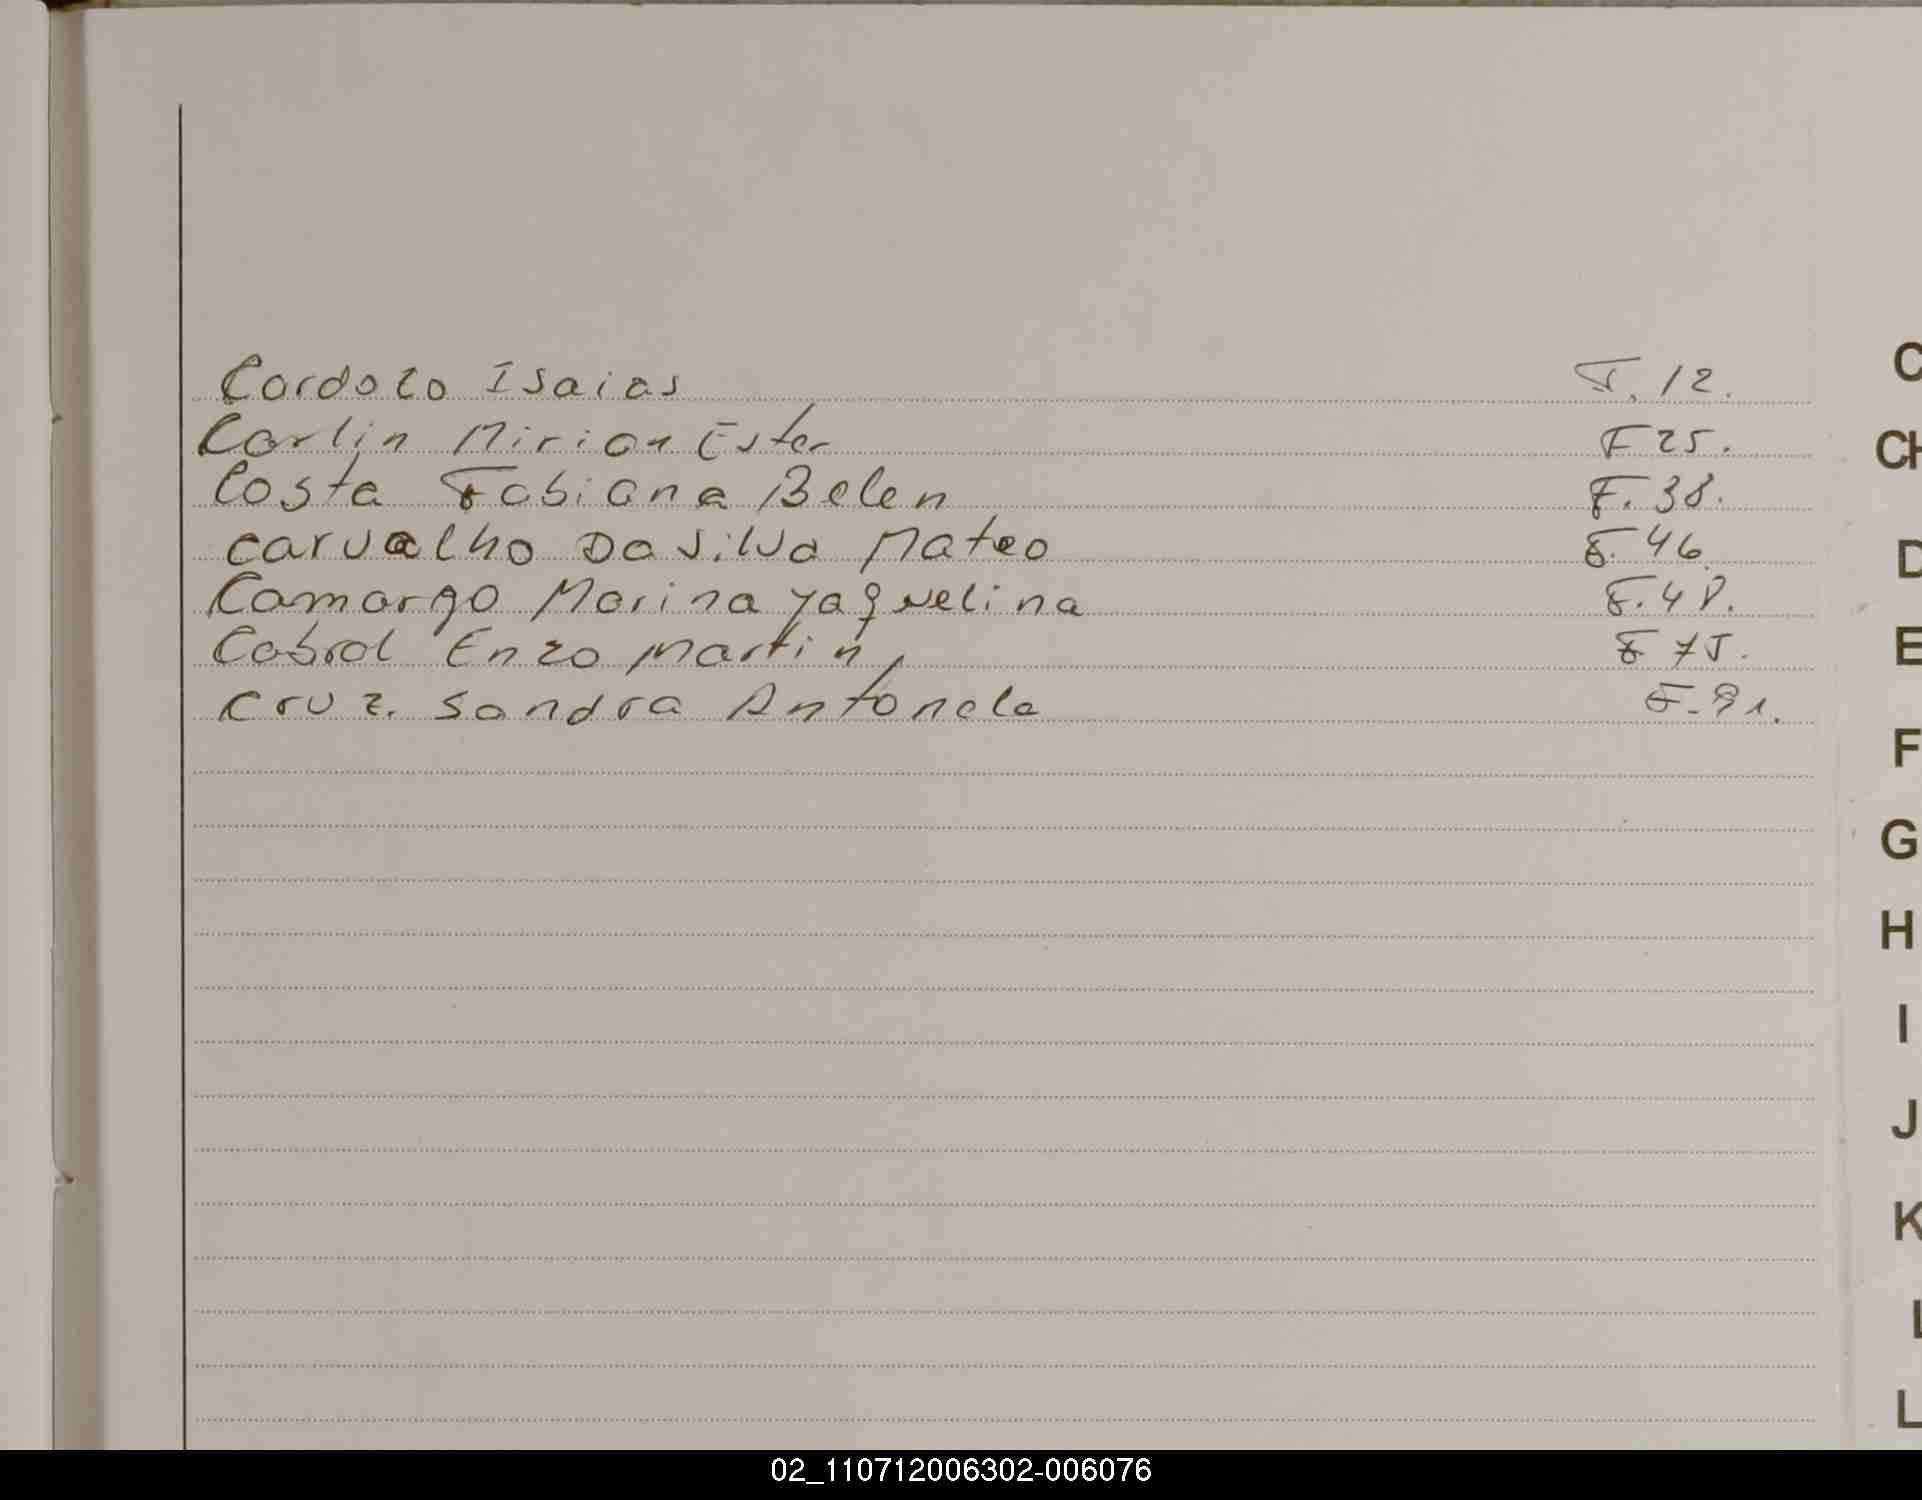 Cardozo Isaias F. 12.
Carlin Mirian Ester F 25.
Costa Fabiana Belen F. 38.
Carvalho Da Silva Mateo F. 46.
Camargo Marina Yaquelina F. 48.
Cabral Enzo Martin F 75.
Cruz. Sandra Antonela F. 91.
C
CH
D
E
F
G
H
I
J
K
L
L
02_110712006302-006076